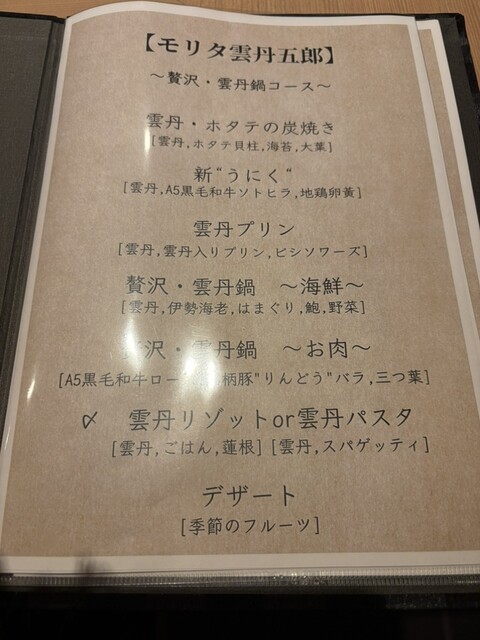 【モリタ雲丹五郎】
〜贅沢・雲丹鍋コース〜
雲丹・ホタテの炭焼き
[雲丹,ホタテ貝柱,海苔,大葉]
新“うにく“
[雲丹,A5黒毛和牛ソトヒラ,地鶏卵黄]
雲丹プリン
[雲丹,雲丹入りプリン,ビシソワーズ]
贅沢・雲丹鍋　〜海鮮〜
[雲丹,伊勢海老,はまぐり,鮑,野菜]
沢・雲丹鍋　〜お肉〜
[A5黒毛和牛ロー 柄豚"りんどう"バラ,三つ葉]
〆　雲丹リゾットor雲丹パスタ
[雲丹,ごはん,蓮根] [雲丹,スパゲッティ]
デザート
[季節のフルーツ]